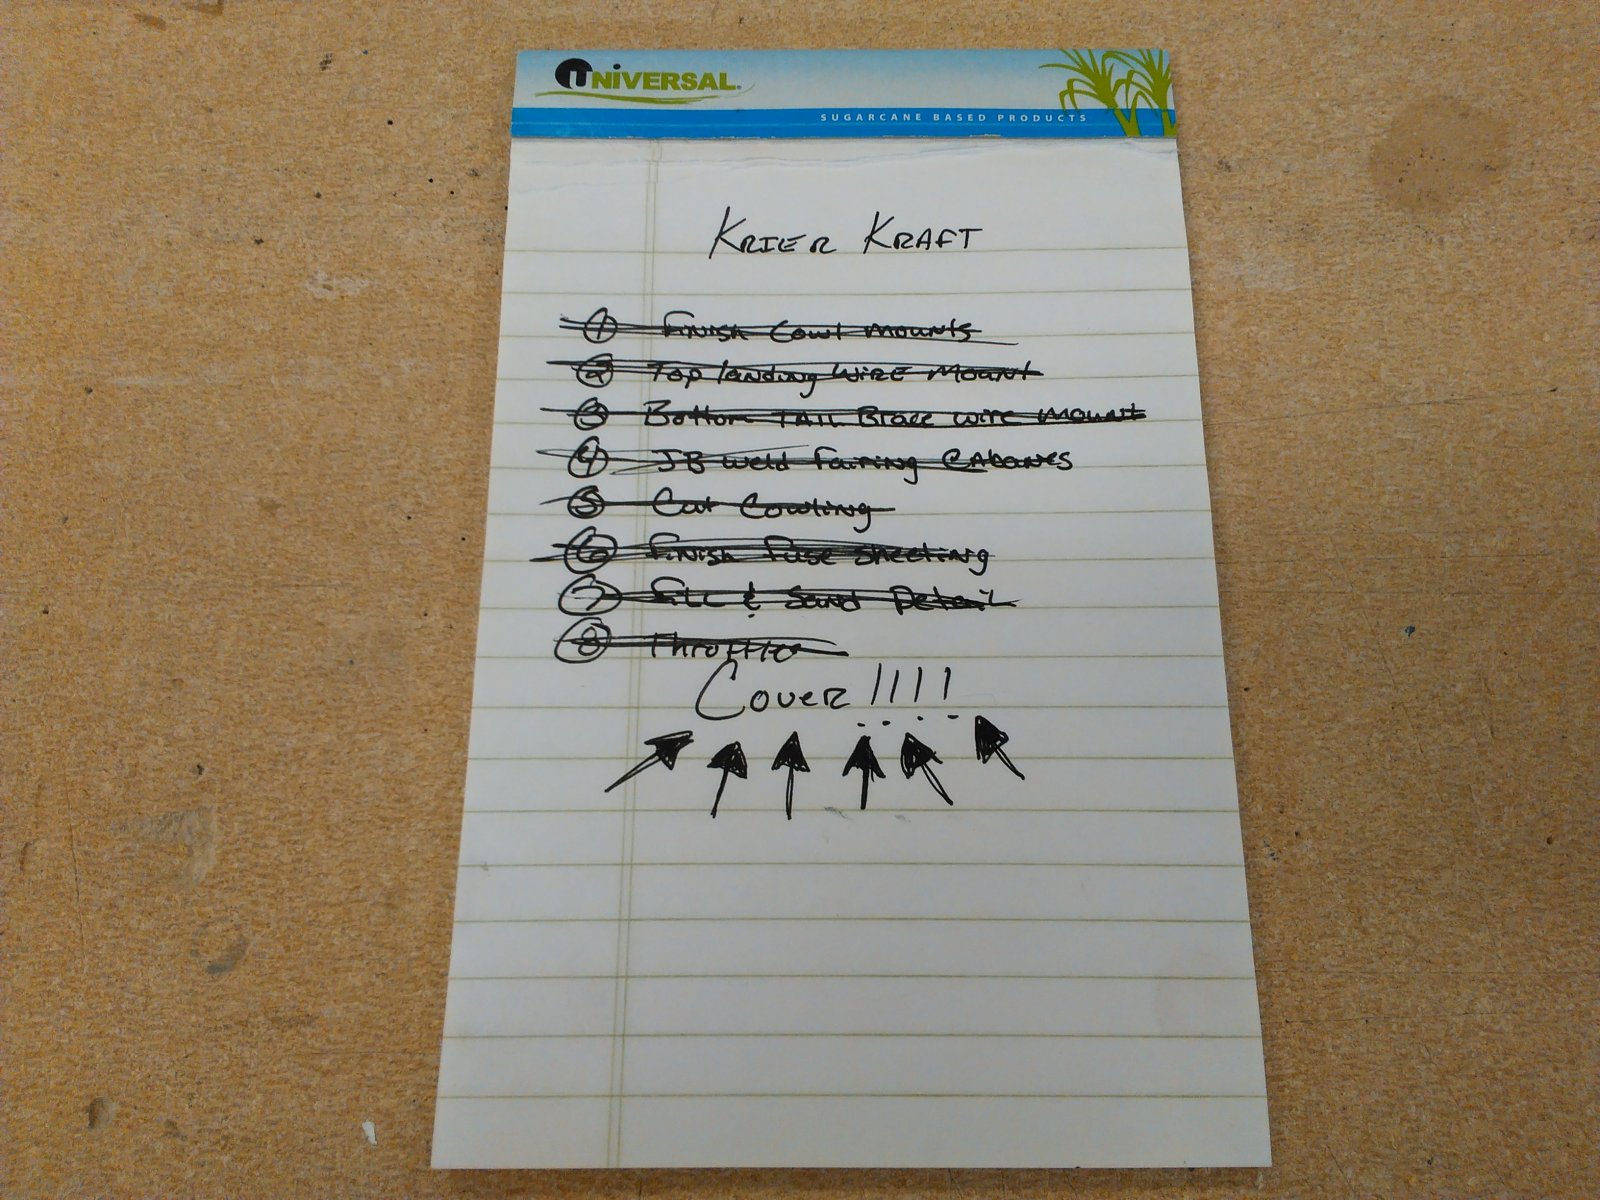 UNIVERSAL
SUGARCANE BASED PRODUCTS
KRIER KRAFT
1 Finish Cowl Mounts
2 Top landing WIRE Mount
3 Bottom TAIL Brace wire Mount
4 JB weld Fairing CABANES
5 Cut Cowling
6 Finish Fuse sheeting
7 Fill & Sand Detail
8 Throttle
Cover !!!!